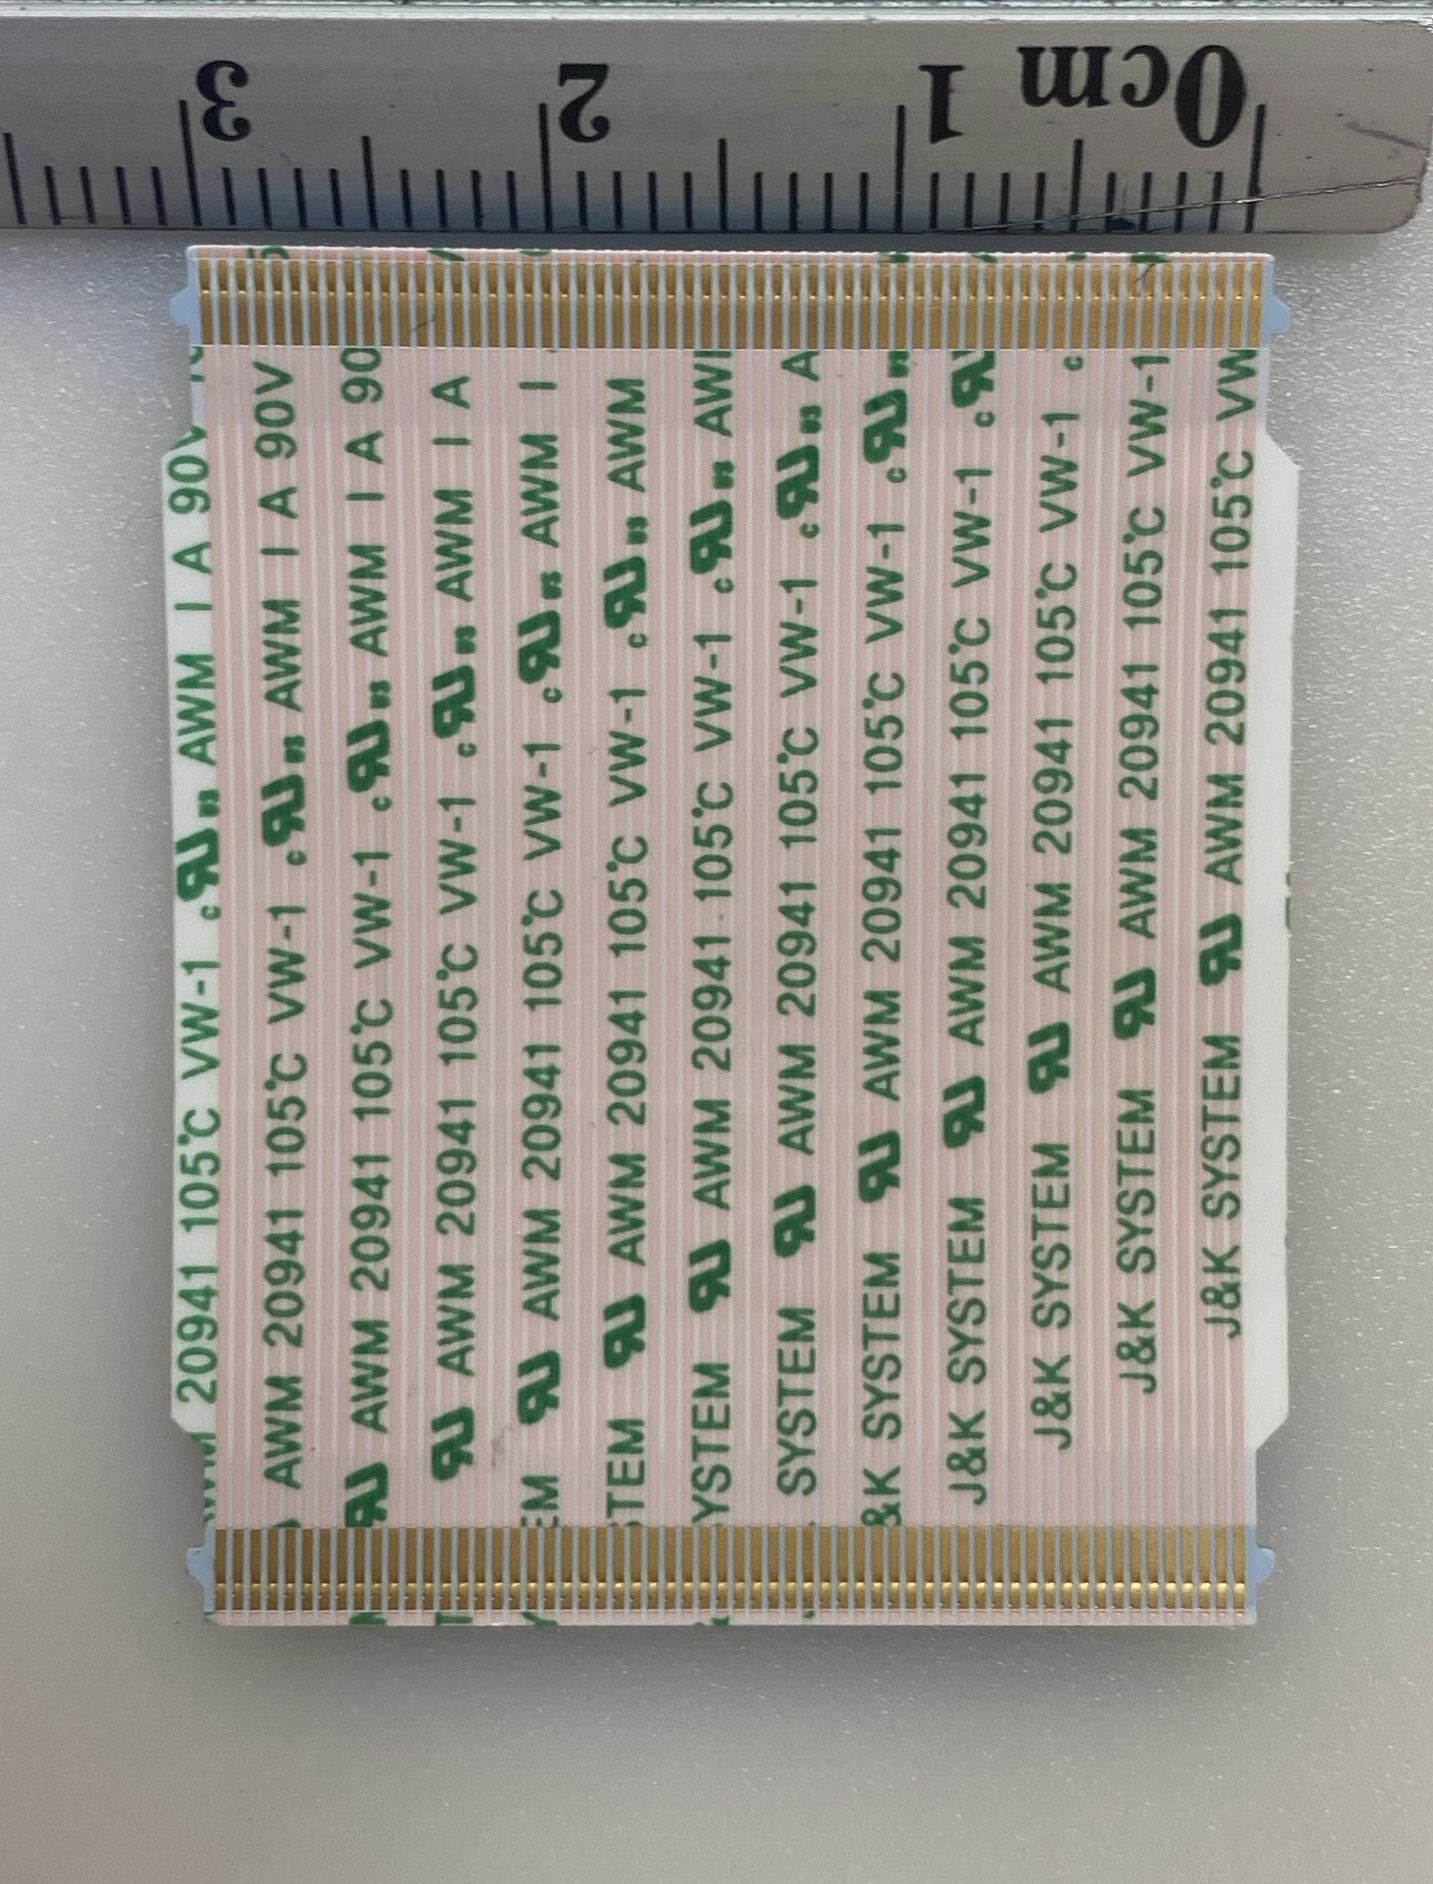 0cm 1 2 3
20941 105℃ VW-1 cRUus AWM I A 90V
AWM 20941 105℃ VW-1 cRUus AWM I A 90V
RU AWM 20941 105℃ VW-1 cRUus AWM I A 90
RU AWM 20941 105℃ VW-1 cRUus AWM I A
EM RU AWM 20941 105℃ VW-1 cRUus AWM I
TEM RU AWM 20941 105℃ VW-1 cRUus AWM
YSTEM RU AWM 20941 105℃ VW-1 cRUus AWM
SYSTEM RU AWM 20941 105℃ VW-1 cRUus A
&K SYSTEM RU AWM 20941 105℃ VW-1 cRUus
J&K SYSTEM RU AWM 20941 105℃ VW-1 cRU
J&K SYSTEM RU AWM 20941 105℃ VW-1 c
J&K SYSTEM RU AWM 20941 105℃ VW-1
J&K SYSTEM RU AWM 20941 105℃ VW